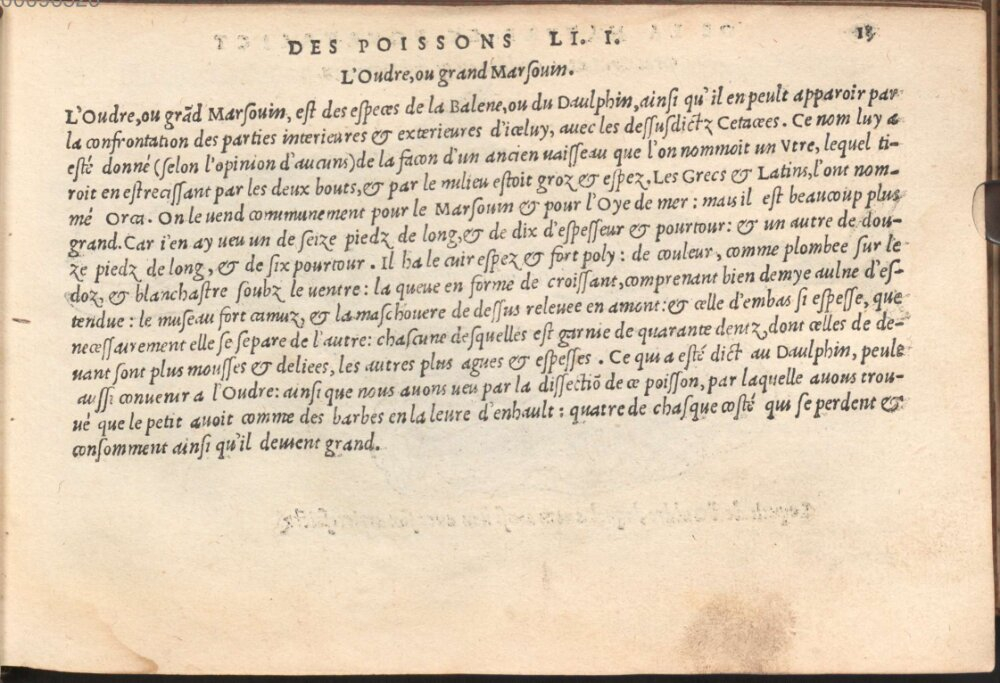 DES POISSONS LI. I. 13
L'Oudre, ou grand Marſouin.
L'Oudre, ou grãd Marſouin, eſt des eſpeces de la Balene, ou du Daulphin, ainſi qu'il en peult apparoir par
la confrontation des parties interieures & exterieures d'icœluy, auec les deſſuſdictz Cetacees. Ce nom luy a
eſté donné (ſelon l'opinion d'aucuns) de la façon d'un ancien uaiſſeau que l'on nommoit un Vtre, lequel ti-
roit en eſtreciſſant par les deux bouts, & par le milieu eſtoit groz & eſpez. Les Grecs & Latins, l'ont nom-
mé Orca. On le uend communement pour le Marſouin & pour l'Oye de mer: mais il eſt beaucoup plus
grand. Car i'en ay ueu un de ſeize piedz de long, & de dix d'eſpeſſeur & pourtour: & un autre de dou-
ze piedz de long, & de ſix pourtour. Il ha le cuir eſpez & fort poly: de couleur, comme plombee ſur le
doz, & blanchaſtre ſoubz le uentre: la queue en forme de croiſſant, comprenant bien demye aulne d'eſ-
tendue: le muſeau fort camuz, & la maſchouere de deſſus releuee en amont: & celle d'embas ſi eſpeſſe, que
neceſſairement elle ſe ſepare de l'autre: chaſcune deſquelles eſt garnie de quarante dentz, dont celles de de-
uant ſont plus mouſſes & deliees, les autres plus agues & eſpeſſes. Ce qui a eſté dict au Daulphin, peult
auſſi conuenir a l'Oudre: ainſi que nous auons ueu par la diſſectiõ de ce poiſſon, par laquelle auons trou-
ué que le petit auoit comme des barbes en la leure d'enhault: quatre de chaſque coſté qui ſe perdent &
conſomment ainſi qu'il deuient grand.